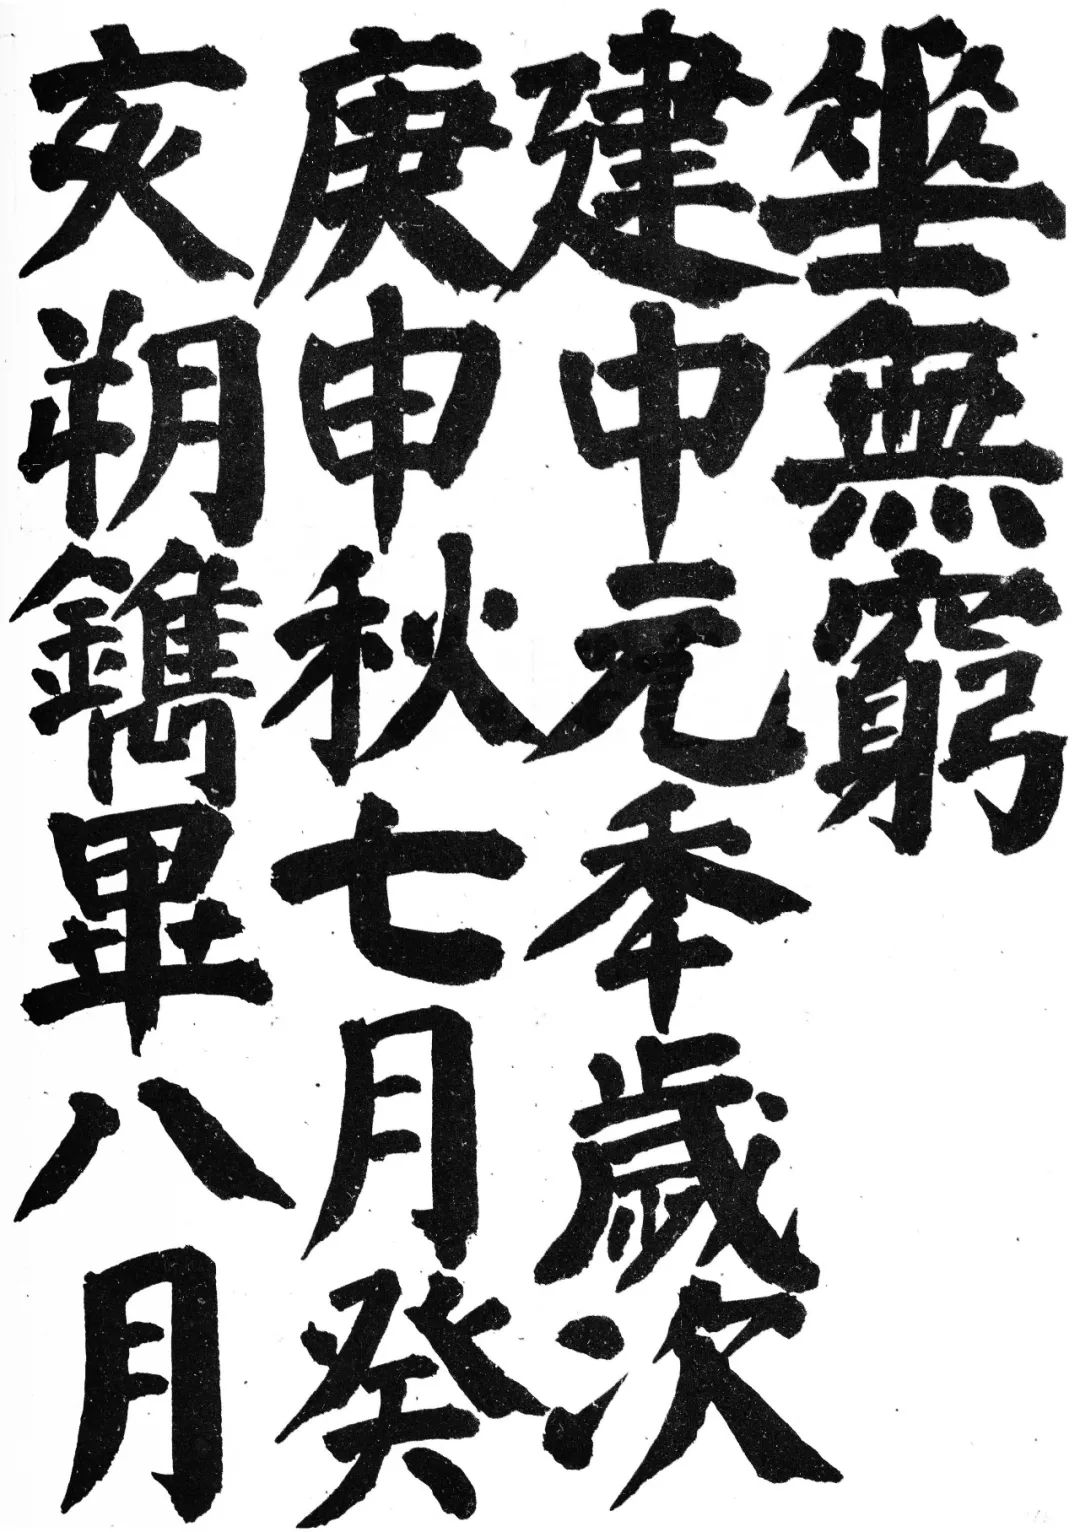 垂無窮
建中元秊歲次
庚申秋七月癸
亥朔鐫畢八月